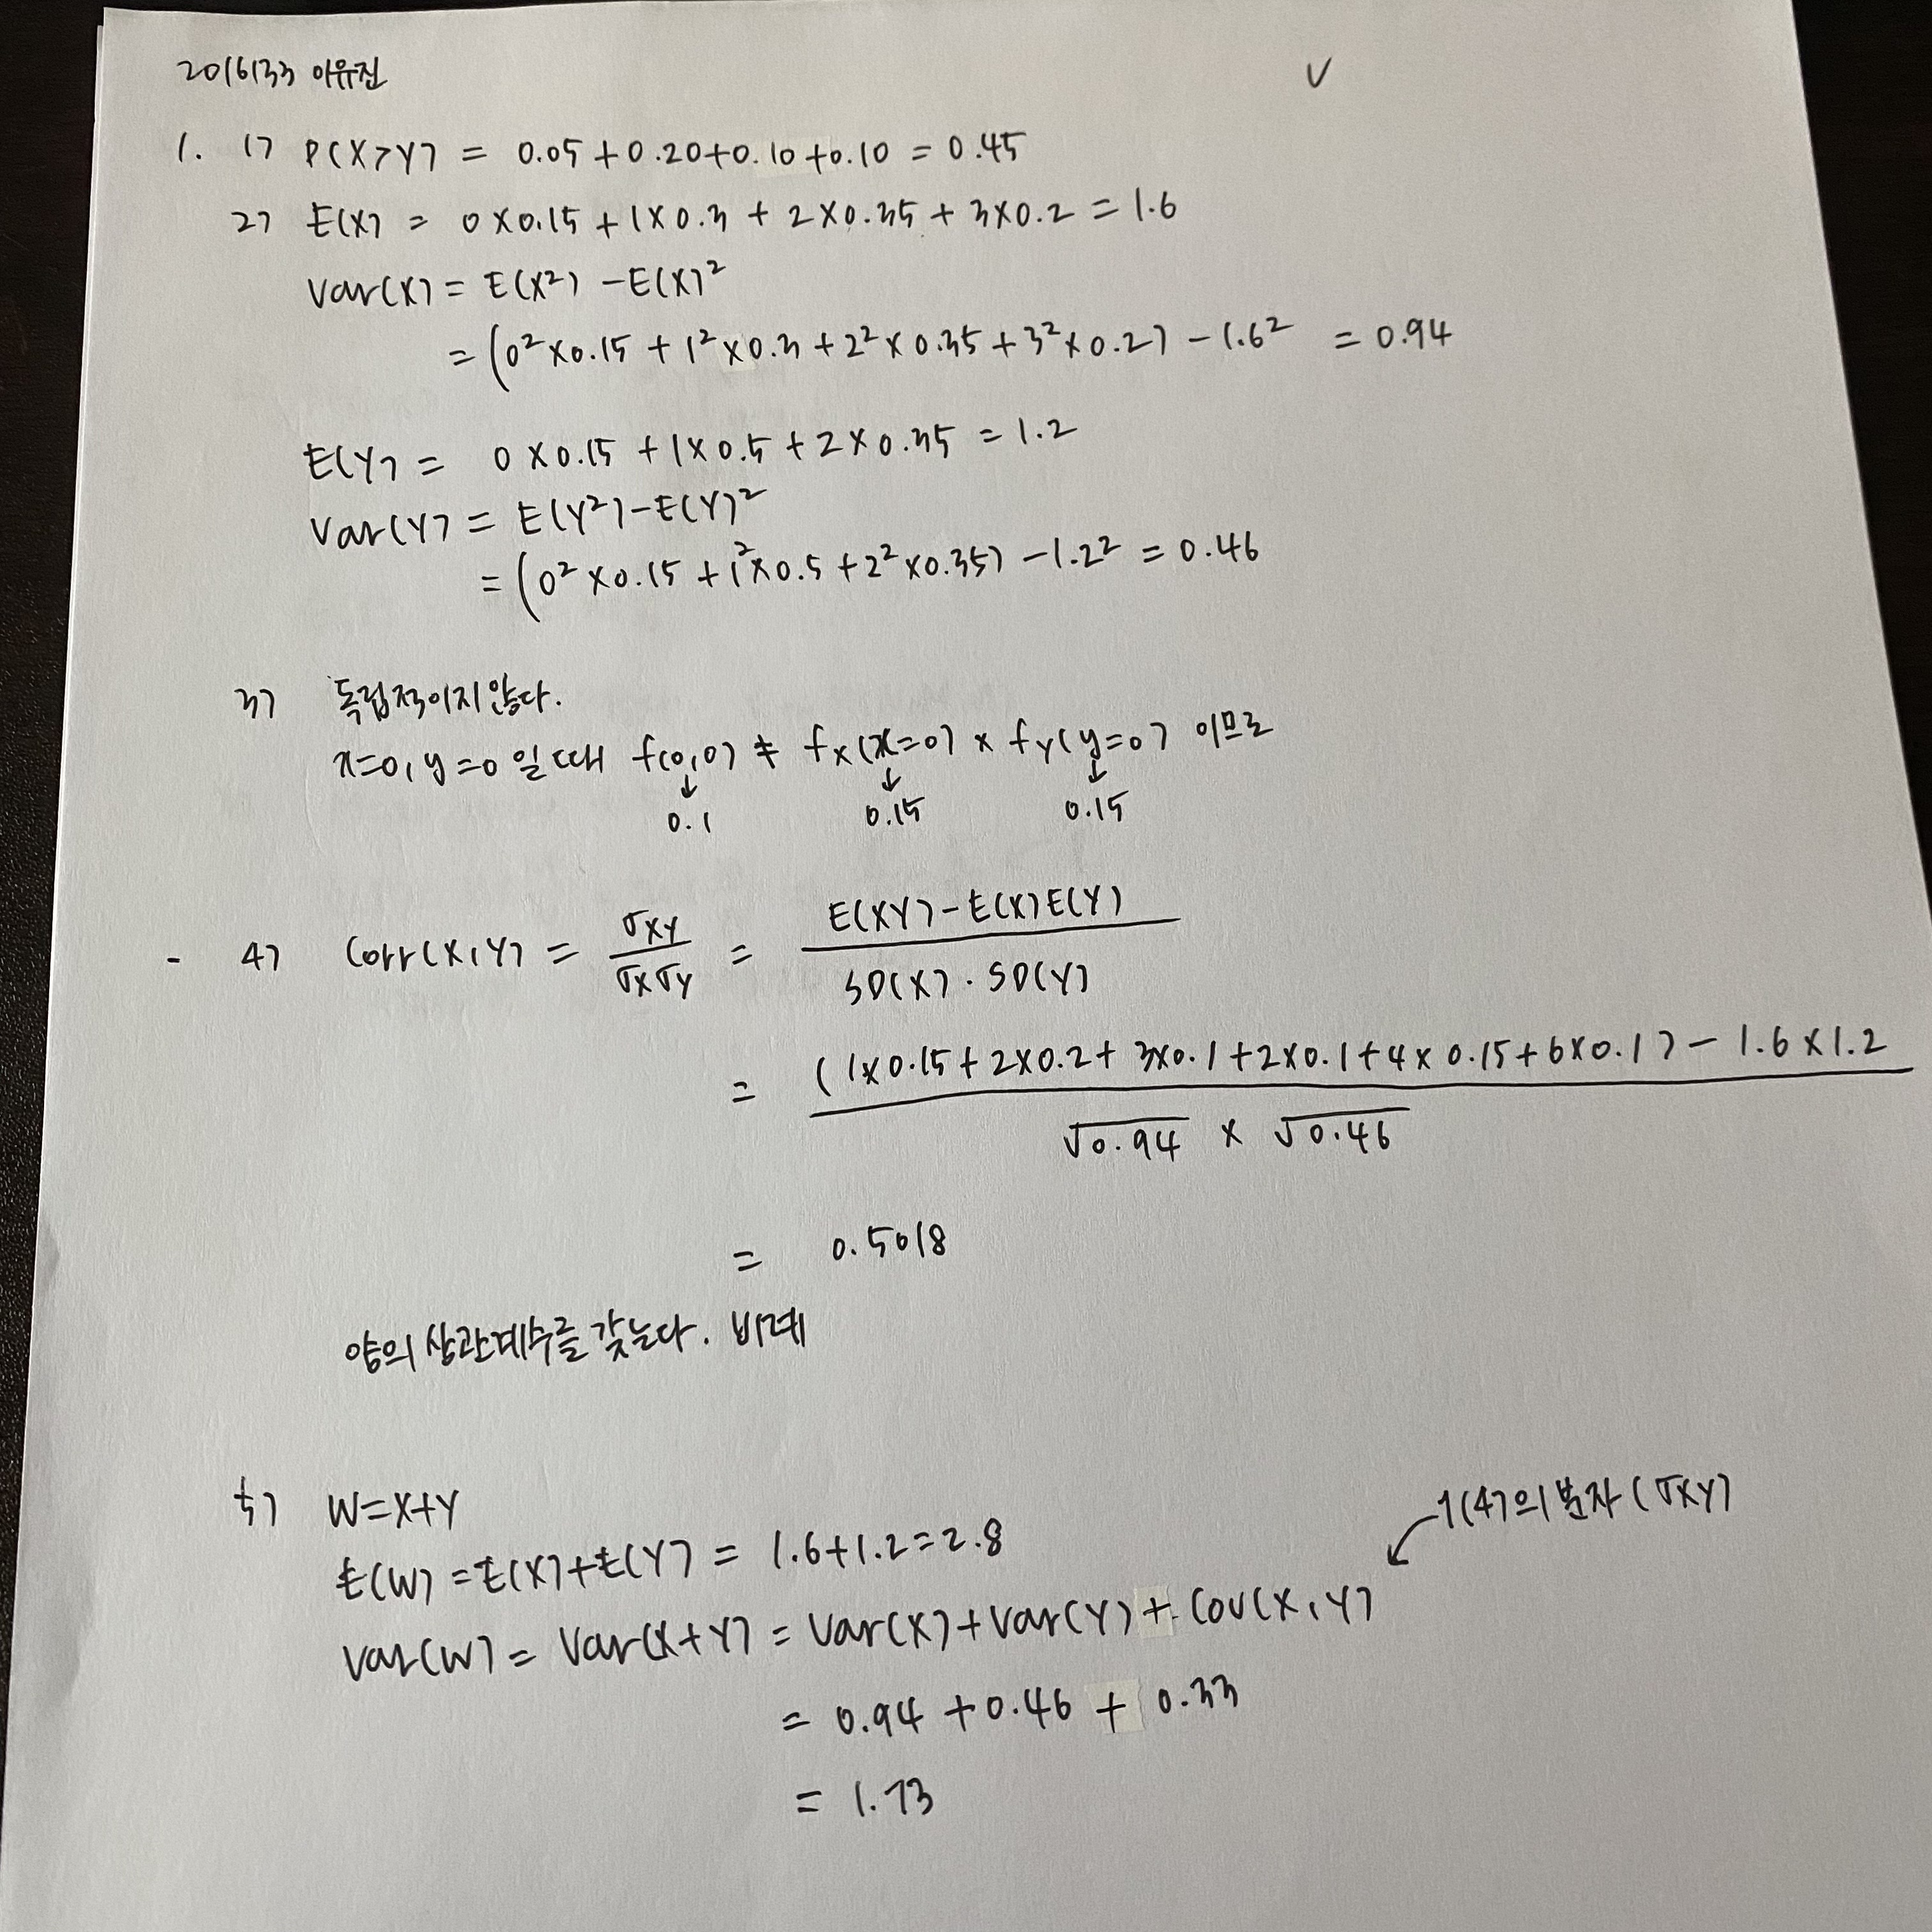 2016133 이유진
V
1. 1) P(X>Y) = 0.05+0.20+0.10+0.10 = 0.45
2) E(X) = 0×0.15+1×0.3+2×0.35+3×0.2 = 1.6
Var(X) = E(X²)-E(X)²
= (0²×0.15+1²×0.3+2²×0.35+3²×0.2)-1.6² = 0.94
E(Y) = 0×0.15+1×0.5+2×0.35 = 1.2
Var(Y) = E(Y²)-E(Y)²
= (0²×0.15+1²×0.5+2²×0.35)-1.2² = 0.46
3) 독립적이지 않다.
x=0, y=0 일 때 f(0,0) ≠ fX(x=0) × fY(y=0) 이므로
↓ ↓ ↓
0.1 0.15 0.15
- 4) Corr(X,Y) = σXY/σXσY = E(XY)-E(X)E(Y)/SD(X)·SD(Y)
= (1×0.15+2×0.2+3×0.1+2×0.1+4×0.15+6×0.1)-1.6×1.2/√0.94 × √0.46
= 0.5018
양의 상관계수를 갖는다. 비례
5) W=X+Y
E(W)=E(X)+E(Y) = 1.6+1.2=2.8
1(4)의 분자 (σXY)
Var(W) = Var(X+Y) = Var(X)+Var(Y)+Cov(X,Y)
= 0.94+0.46+0.33
= 1.73